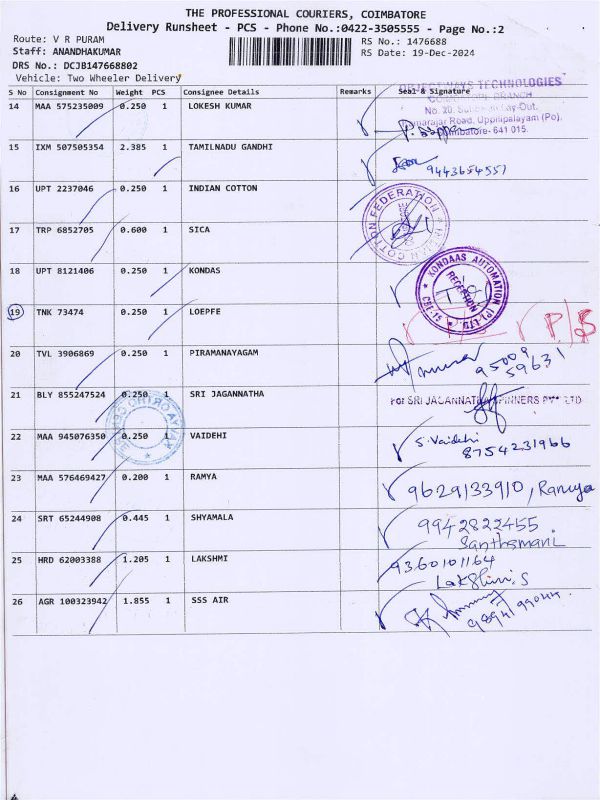 THE PROFESSIONAL COURIERS, COIMBATORE
Delivery Runsheet - PCS - Phone No.:0422-3505555 - Page No.:2
Route: V R PURAM
RS No.: 1476688
Staff: ANANDHAKUMAR
RS Date: 19-Dec-2024
DRS No.: DCJB147668802
Vehicle: Two Wheeler Delivery
S No Consignment No Weight PCS Consignee Details Remarks Seal & Signature
OBJECTWAYS TECHNOLOGIES
14 MAA 575235009 0.250 1 LOKESH KUMAR
Road, Uppilipalayam (Po).
Coimbatore- 641 015.
15 IXM 507505354 2.385 1 TAMILNADU GANDHI
9443654557
16 UPT 2237046 0.250 1 INDIAN COTTON
COTTON FEDERATION
17 TRP 6852705 0.600 1 SICA
18 UPT 8121406 0.250 1 KONDAS
KONDAAS AUTOMATION (P) LTD.
RECEPTION
CBE-15
19 TNK 73474 0.250 1 LOEPFE
P/S
20 TVL 3906869 0.250 1 PIRAMANAYAGAM
95009
59631
21 BLY 855247524 0.250 1 SRI JAGANNATHA
For SRI JAGANNATHA SPINNERS PVT LTD
22 MAA 945076350 0.250 1 VAIDEHI
S. Vaidehi
8754231966
23 MAA 576469427 0.200 1 RAMYA
9629133910, Ramya
24 SRT 65244908 0.445 1 SHYAMALA
9942822455
Santhamani
25 HRD 62003388 1.205 1 LAKSHMI
9360101164
Lakshmi.S
26 AGR 100323942 1.855 1 SSS AIR